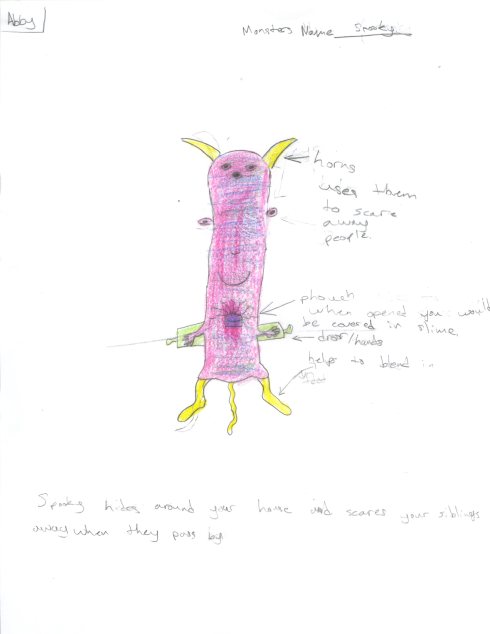 Abby
Monsters Name Spooky
horns
uses them
to scare
away
people.
phouch
when opened you would
be covered in slime.
/hands
helps to blend in
Feet
Spooky hides around your house and scares your siblings
away when they pass by